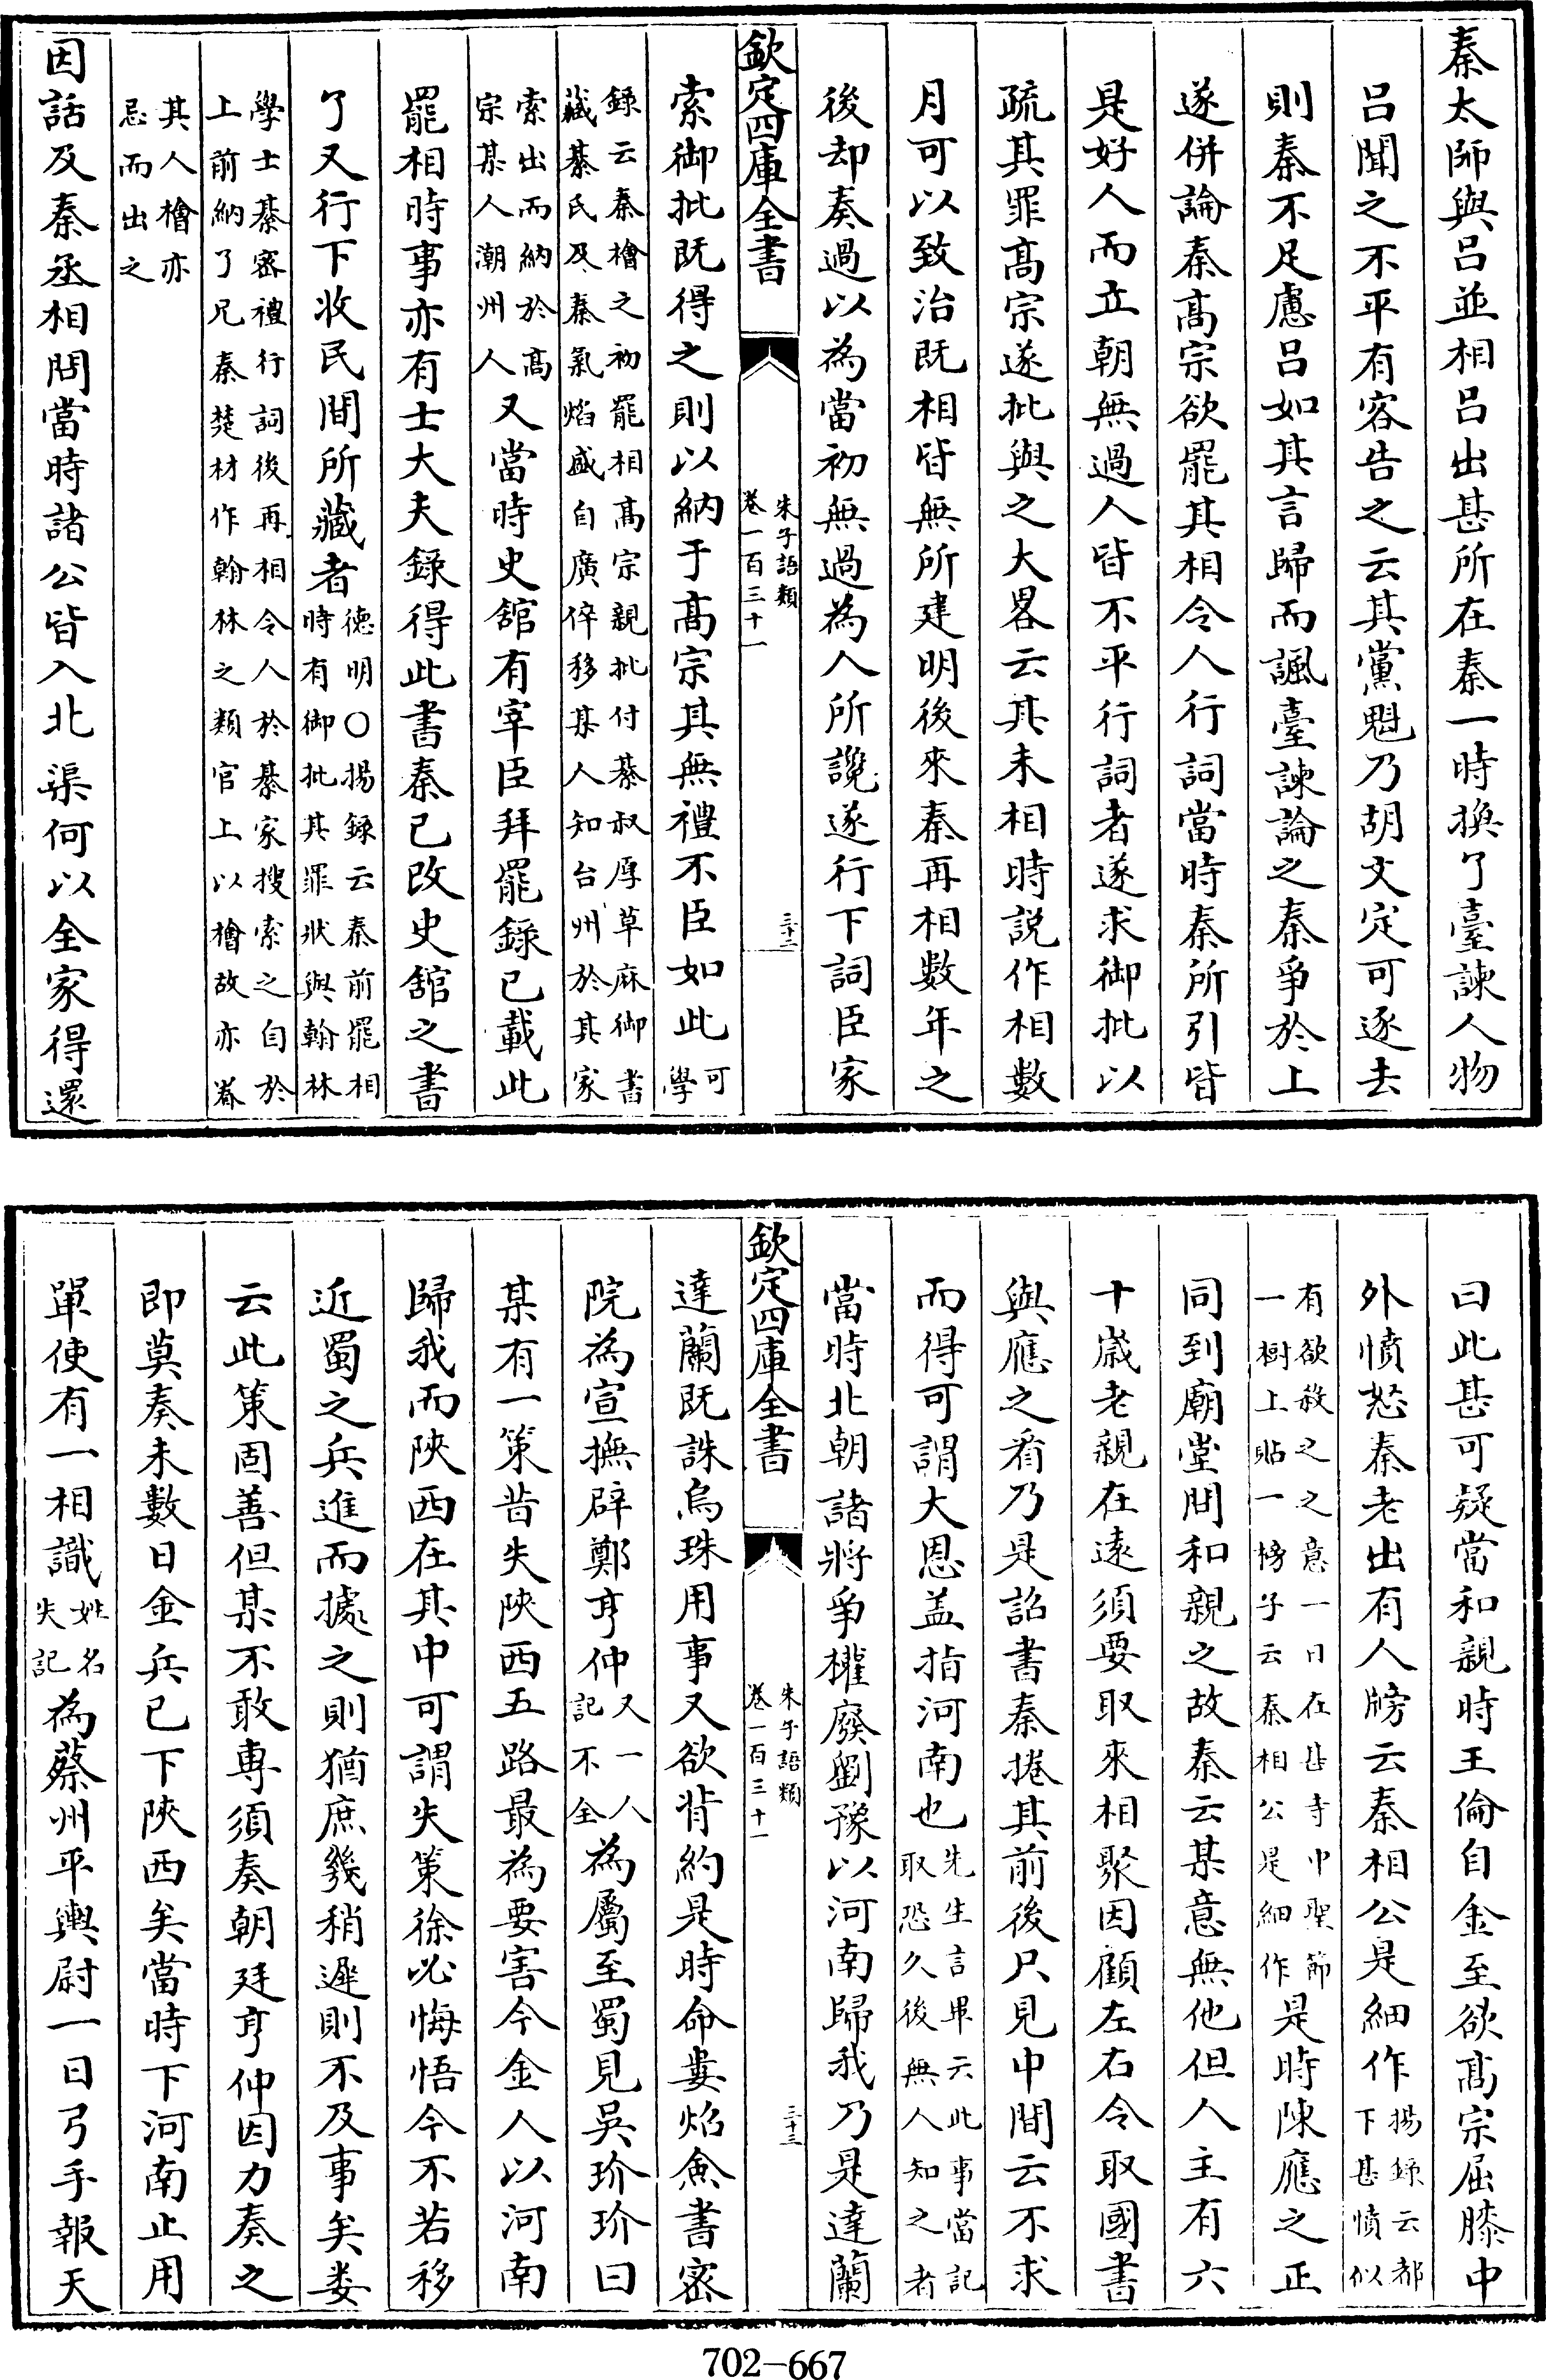 秦太師與呂並相呂出甚所在秦一時換了臺諫人物
呂聞之不平有客告之云其黨魁乃胡文定可逐去
則秦不足慮呂如其言歸而諷臺諫論之秦爭於上
遂併論秦髙宗欲罷其相令人行詞當時秦所引皆
是好人而立朝無過人皆不平行詞者遂求御批以
疏其罪髙宗遂批與之大畧云其未相時説作相數
月可以致治既相皆無所建明後來秦再相數年之
後却奏過以為當初無過為人所讒遂行下詞臣家
欽定四庫全書
朱子語類
卷一百三十一
三十二
索御批既得之則以納于髙宗其無禮不臣如此可學
錄云秦檜之初罷相髙宗親批付綦叔厚草麻御書
藏綦氏及秦氣焰盛自廣倅移某人知台州於其家
索出而納於髙
宗某人潮州人
又當時史舘有宰臣拜罷錄已載此
罷相時事亦有士大夫錄得此書秦已改史舘之書
了又行下收民間所藏者
德明○揚錄云秦前罷相
時有御批其罪狀與翰林
學士綦密禮行詞後再相令人於綦家搜索之自於
上前納了兄秦楚材作翰林之類官上以檜故亦眷
其人檜亦
忌而出之
因話及秦丞相問當時諸公皆入北渠何以全家得還
曰此甚可疑當和親時王倫自金至欲髙宗屈膝中
外憤怒秦老出有人牓云秦相公是細作
揚錄云都
下甚憤似
有欲殺之之意一日在甚寺中聖節
一樹上貼一榜子云秦相公是細作
是時陳應之正
同到廟堂問和親之故秦云某意無他但人主有六
十嵗老親在逺須要取來相聚因顧左右令取國書
與應之看乃是詔書秦捲其前後只見中間云不求
而得可謂大恩盖指河南也
先生言畢云此事當記
取恐久後無人知之者
當時北朝諸將爭權廢劉豫以河南歸我乃是達蘭
欽定四庫全書
朱子語類
卷一百三十一
三十三
達蘭既誅烏珠用事又欲背約是時命婁焰僉書宻
院為宣撫辟鄭亨仲
又一人
記不全
為屬至蜀見吳玠玠曰
某有一策昔失陜西五路最為要害今金人以河南
歸我而陜西在其中可謂失策徐必悔悟今不若移
近蜀之兵進而據之則猶庶幾稍遲則不及事矣娄
云此策固善但某不敢専須奏朝廷亨仲因力奏之
即莫奏未數日金兵已下陜西矣當時下河南止用
單使有一相識
姓名
失記
為蔡州平輿尉一日弓手報天
702-667